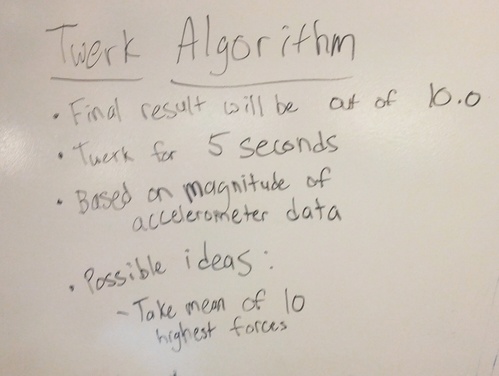 Twerk Algorithm
• Final result will be out of 10.0
• Twerk for 5 seconds
• Based on magnitude of
accelerometer data
• Possible ideas:
- Take mean of 10
highest forces